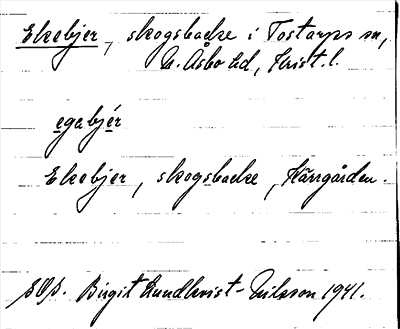 Ekebjer, skogsbacke i Tostarps sn,
N. Åsbo hd, Krist. l.
egabjér
Ekebjer, skogsbacke, Kärrgården.
Birgit Lundkvist-Nilsson 1941.